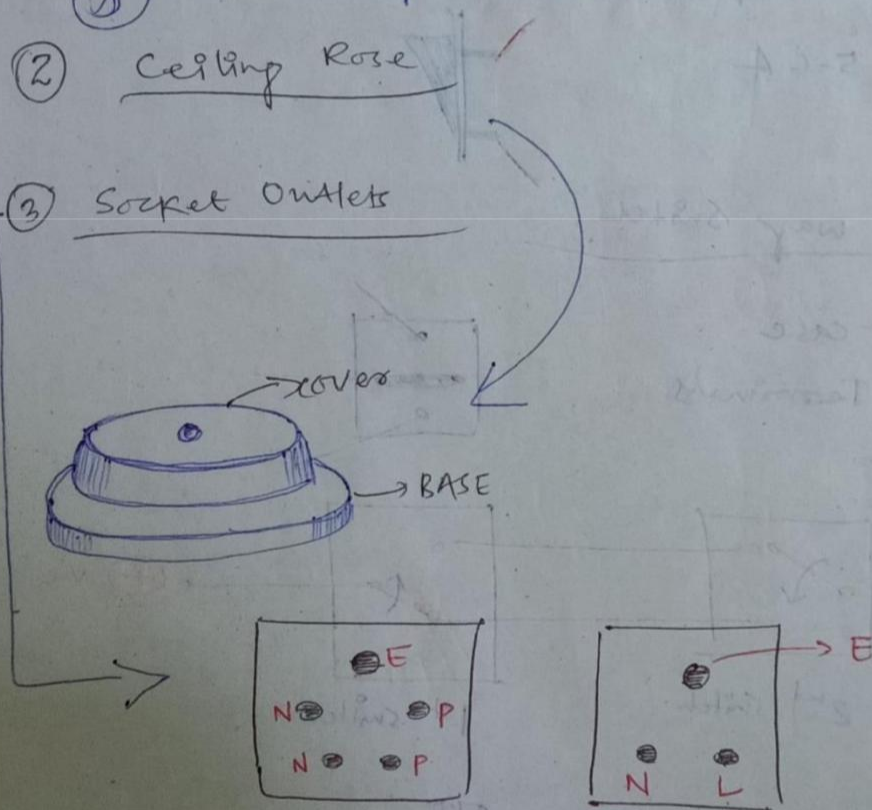 ② Ceiling Rose
③ Socket Outlets
cover
BASE
E
N P
N P
E
N L